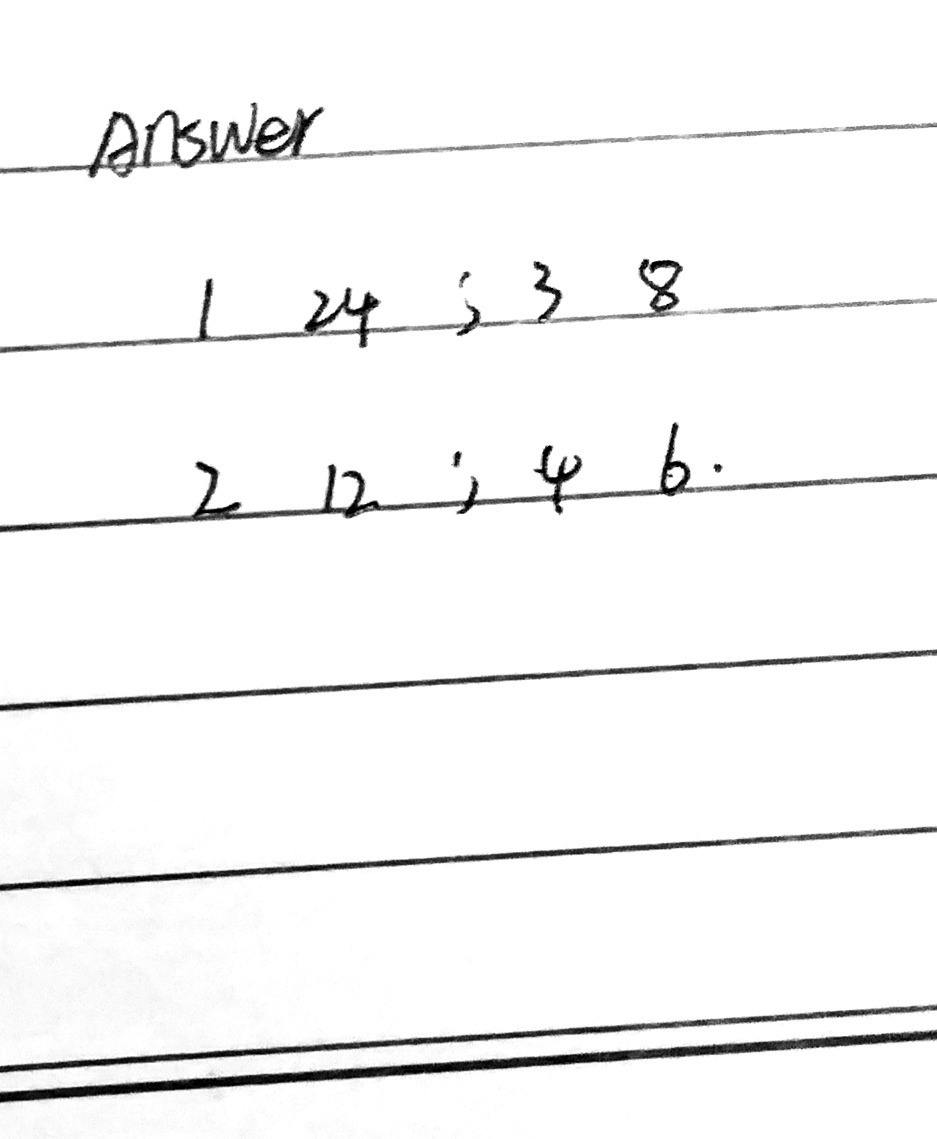 Answer
1 24 ; 3 8
2 12 ; 4 6.